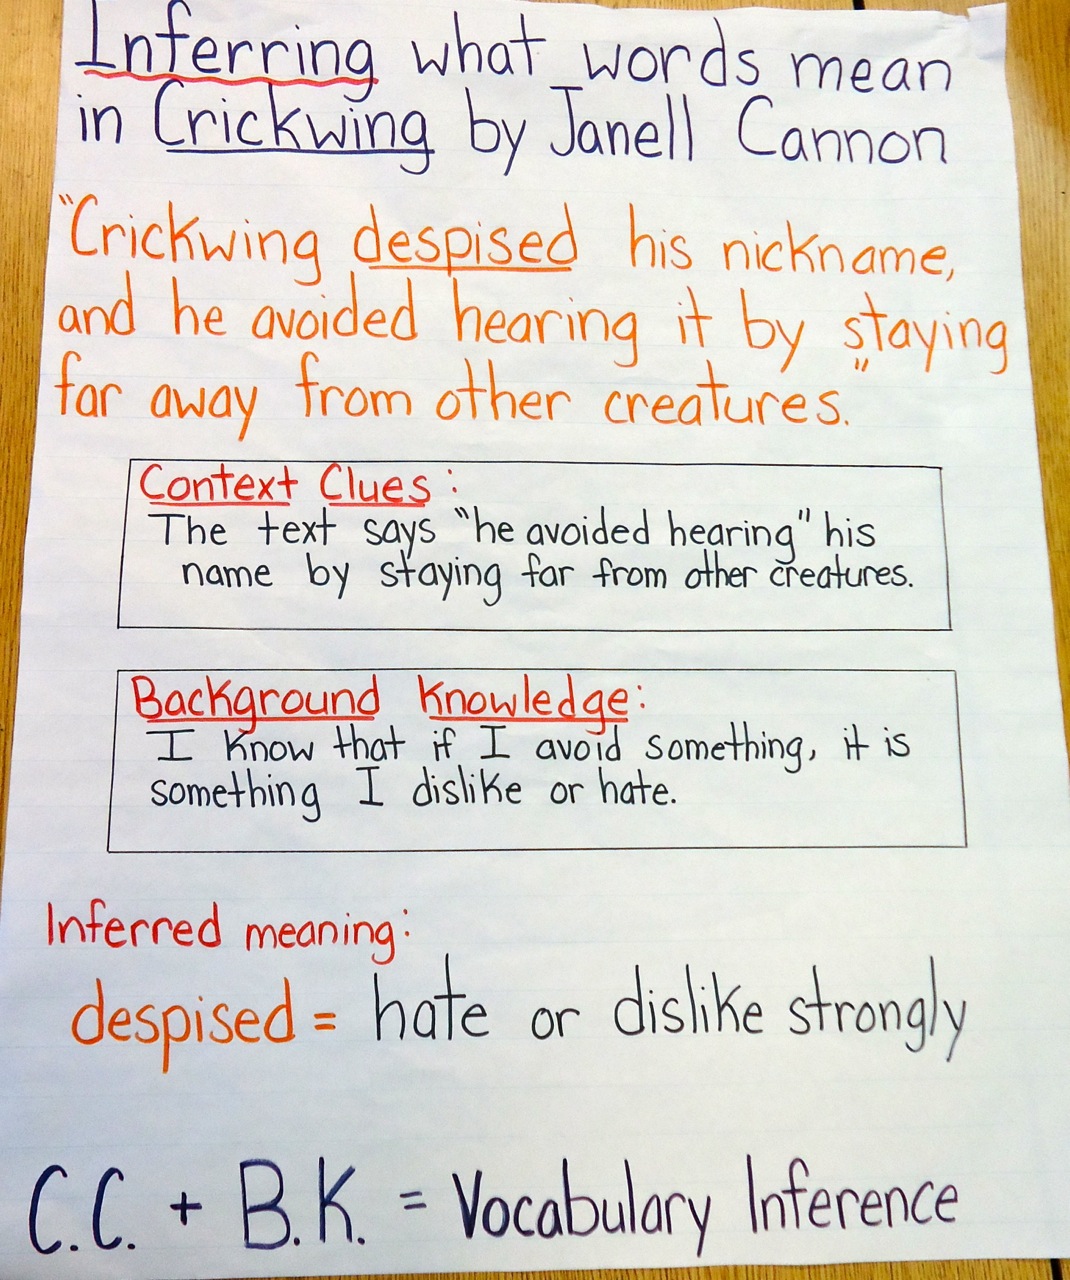 Inferring what words mean
in Crickwing by Janell Cannon
"Crickwing despised his nickname,
and he avoided hearing it by staying
far away from other creatures."
Context Clues:
The text says "he avoided hearing" his
name by staying far from other creatures.
Background Knowledge:
I know that if I avoid something, it is
something I dislike or hate.
Inferred meaning:
despised = hate or dislike strongly
C.C. + B.K. = Vocabulary Inference